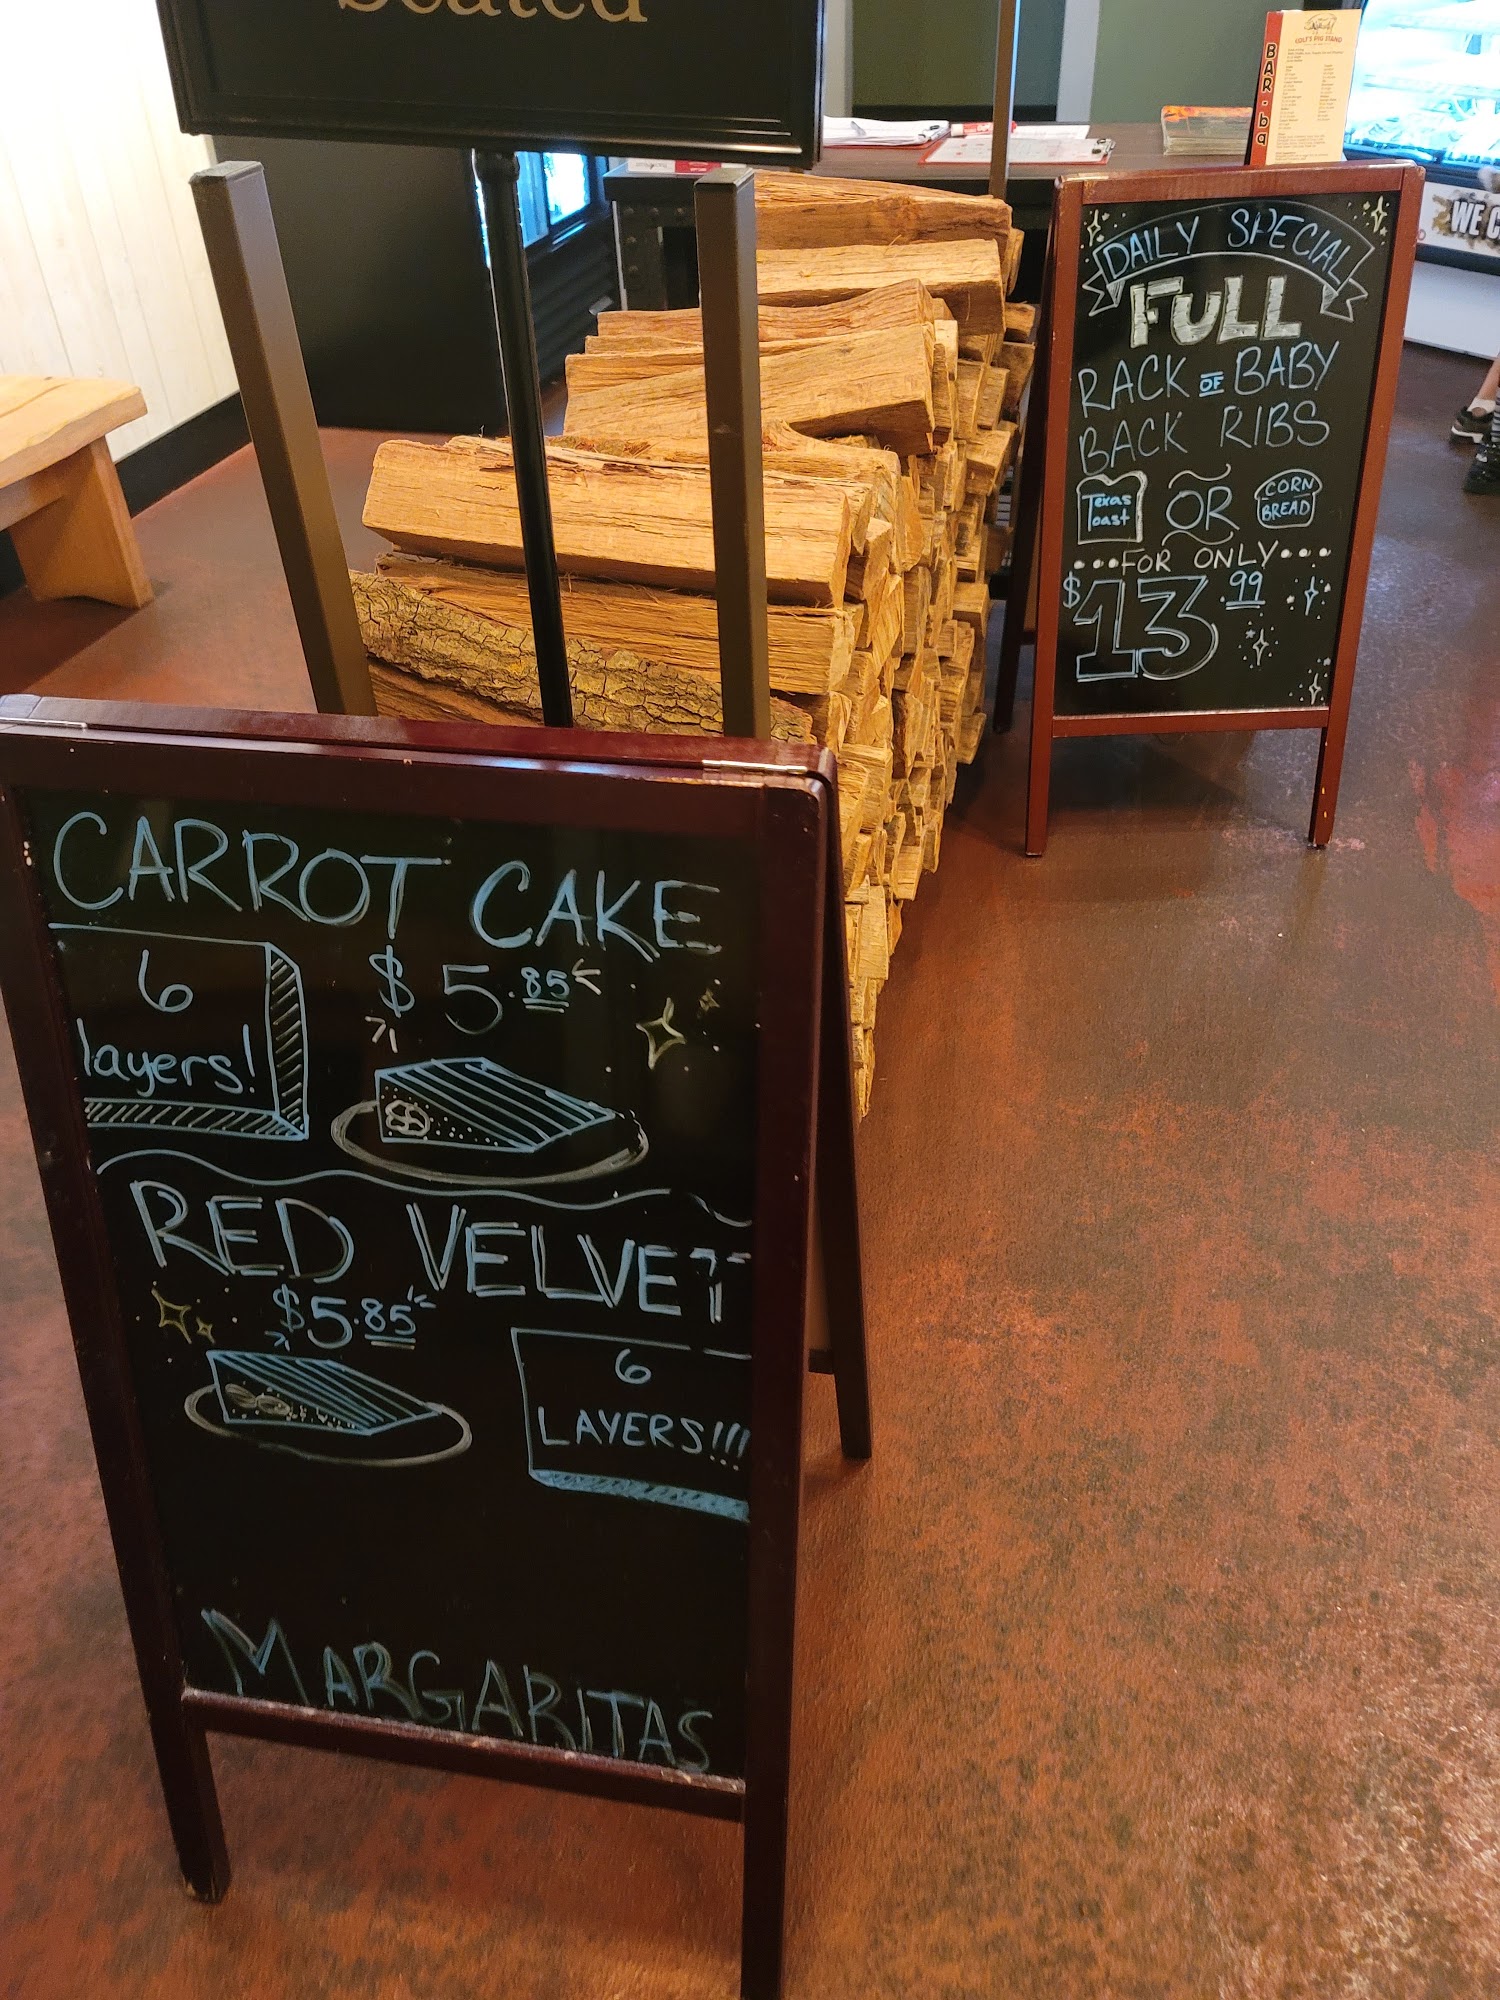 Seated
BAR-BQ
WE C
DAILY SPECIAL
FULL
RACK OF BABY
BACK RIBS
Texas Toast
OR
CORN BREAD
...FOR ONLY...
$13.99
CARROT CAKE
$5.85
6
layers!
RED VELVET
$5.85
6
LAYERS!!!
MARGARITAS